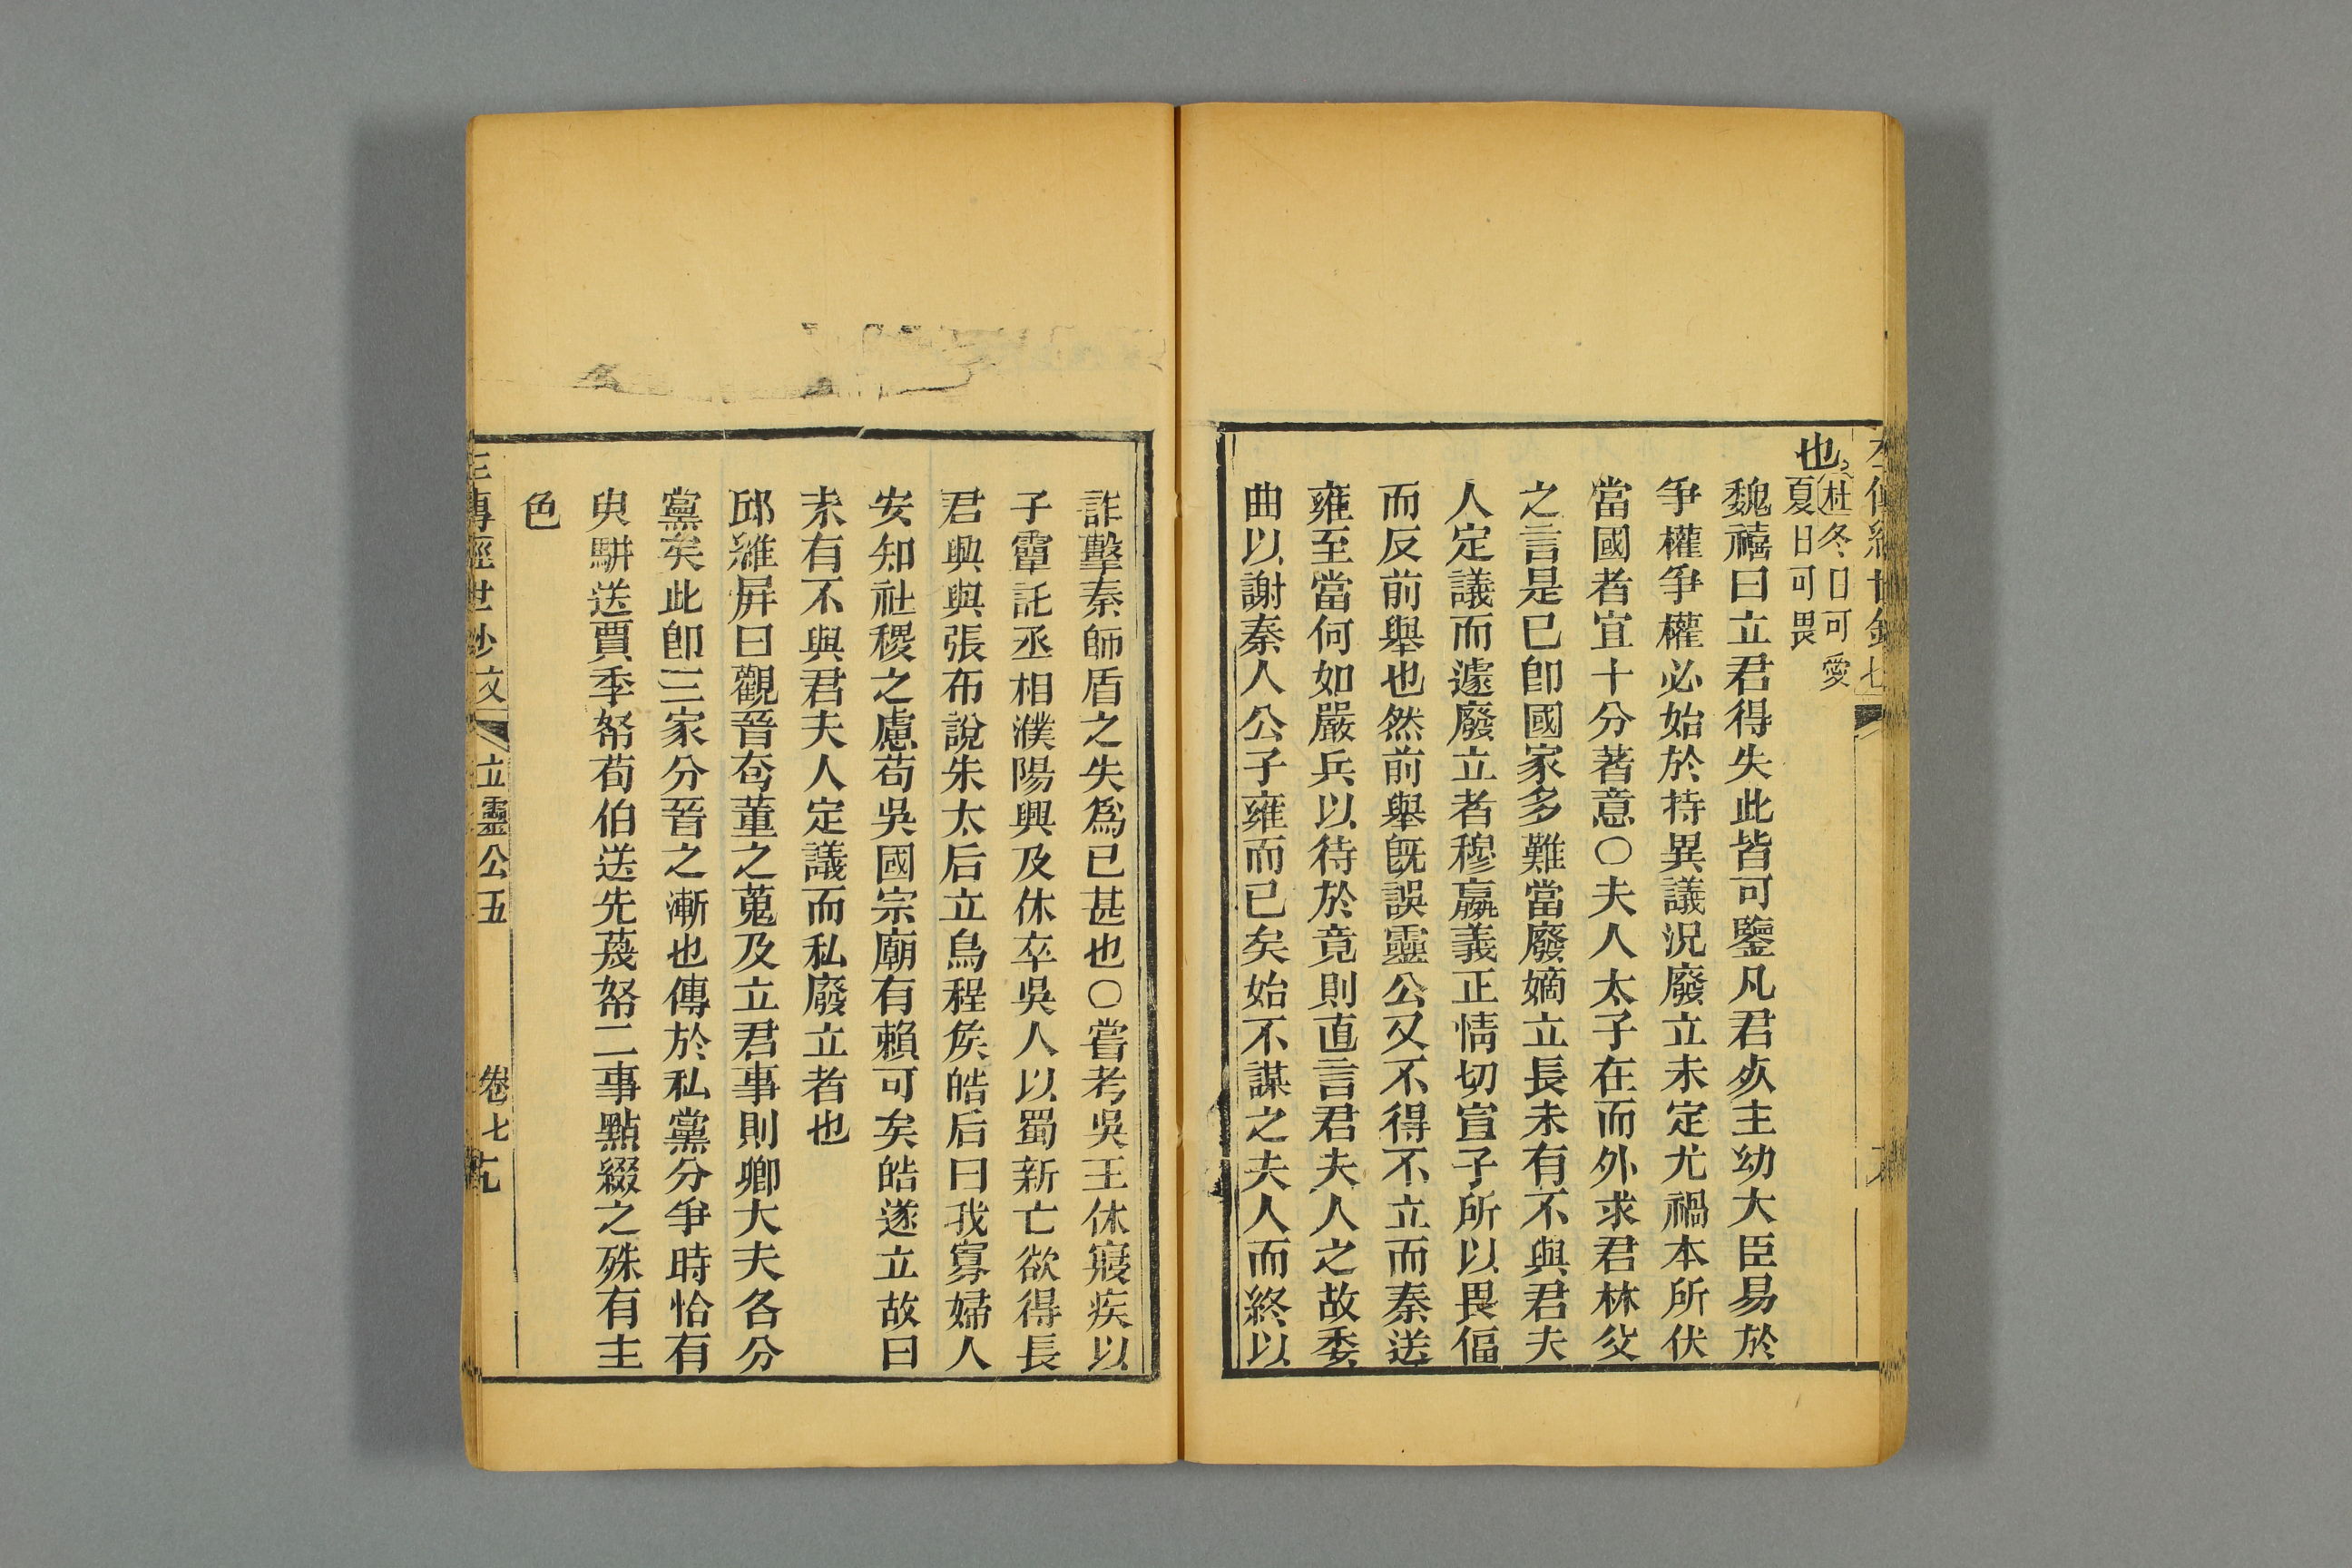 也
杜冬日可愛
夏日可畏
魏禧曰立君得失此皆可鑒凡君夾主幼大臣易於
争權争權必始於持異議況廢立未定尤禍本所伏
當國者宜十分著意〇夫人太子在而外求君林父
之言是已卽國家多難當廢嫡立長未有不與君夫
人定議而遽廢立者穆嬴義正情切宣子所以畏偪
而反前舉也然前舉旣誤靈公又不得不立而秦送
雍至當何如嚴兵以待於竟則直言君夫人之故委
曲以謝秦人公子雍而已矣始不謀之夫人而終以
詐擊秦師盾之失爲已甚也〇嘗考吳王休寢疾以
子𩅦託丞相濮陽興及休卒吳人以蜀新亡欲得長
君興與張布說朱太后立烏程矦皓后曰我寡婦人
安知社稷之慮茍吳國宗廟有賴可矣皓遂立故曰
未有不與君夫人定議而私廢立者也
邱維屏曰觀晉夸董之蒐及立君事則卿大夫各分
黨矣此卽三家分晉之漸也傳於私黨分爭時恰有
臾駢送賈季帑荀伯送先蔑帑二事點綴之殊有主
色
左傳經世鈔文
立靈公五
卷七
九